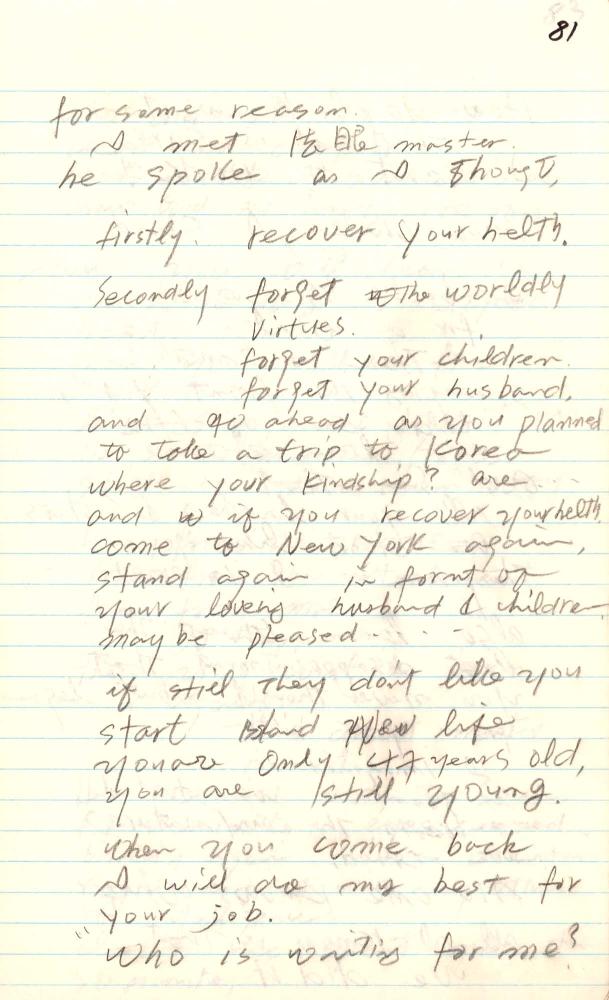 81
for some reason.
I met 法眼 master.
he spoke as I Thougt,
firstly. recover your helth.
Secondly forget The worldly
virtues.
forget your children.
forget your husband,
and go ahead as you planned
to take a trip to Korea
where your kindship? are...
and if you recover your helth,
come to New York again,
stand again in fornt of
your loveing husband & children
may be pleased....
if still They don't like you
start New life
you are Only 47 years old,
you are still young.
when you come back
I will do my best for
your job.
" Who is writing for me?